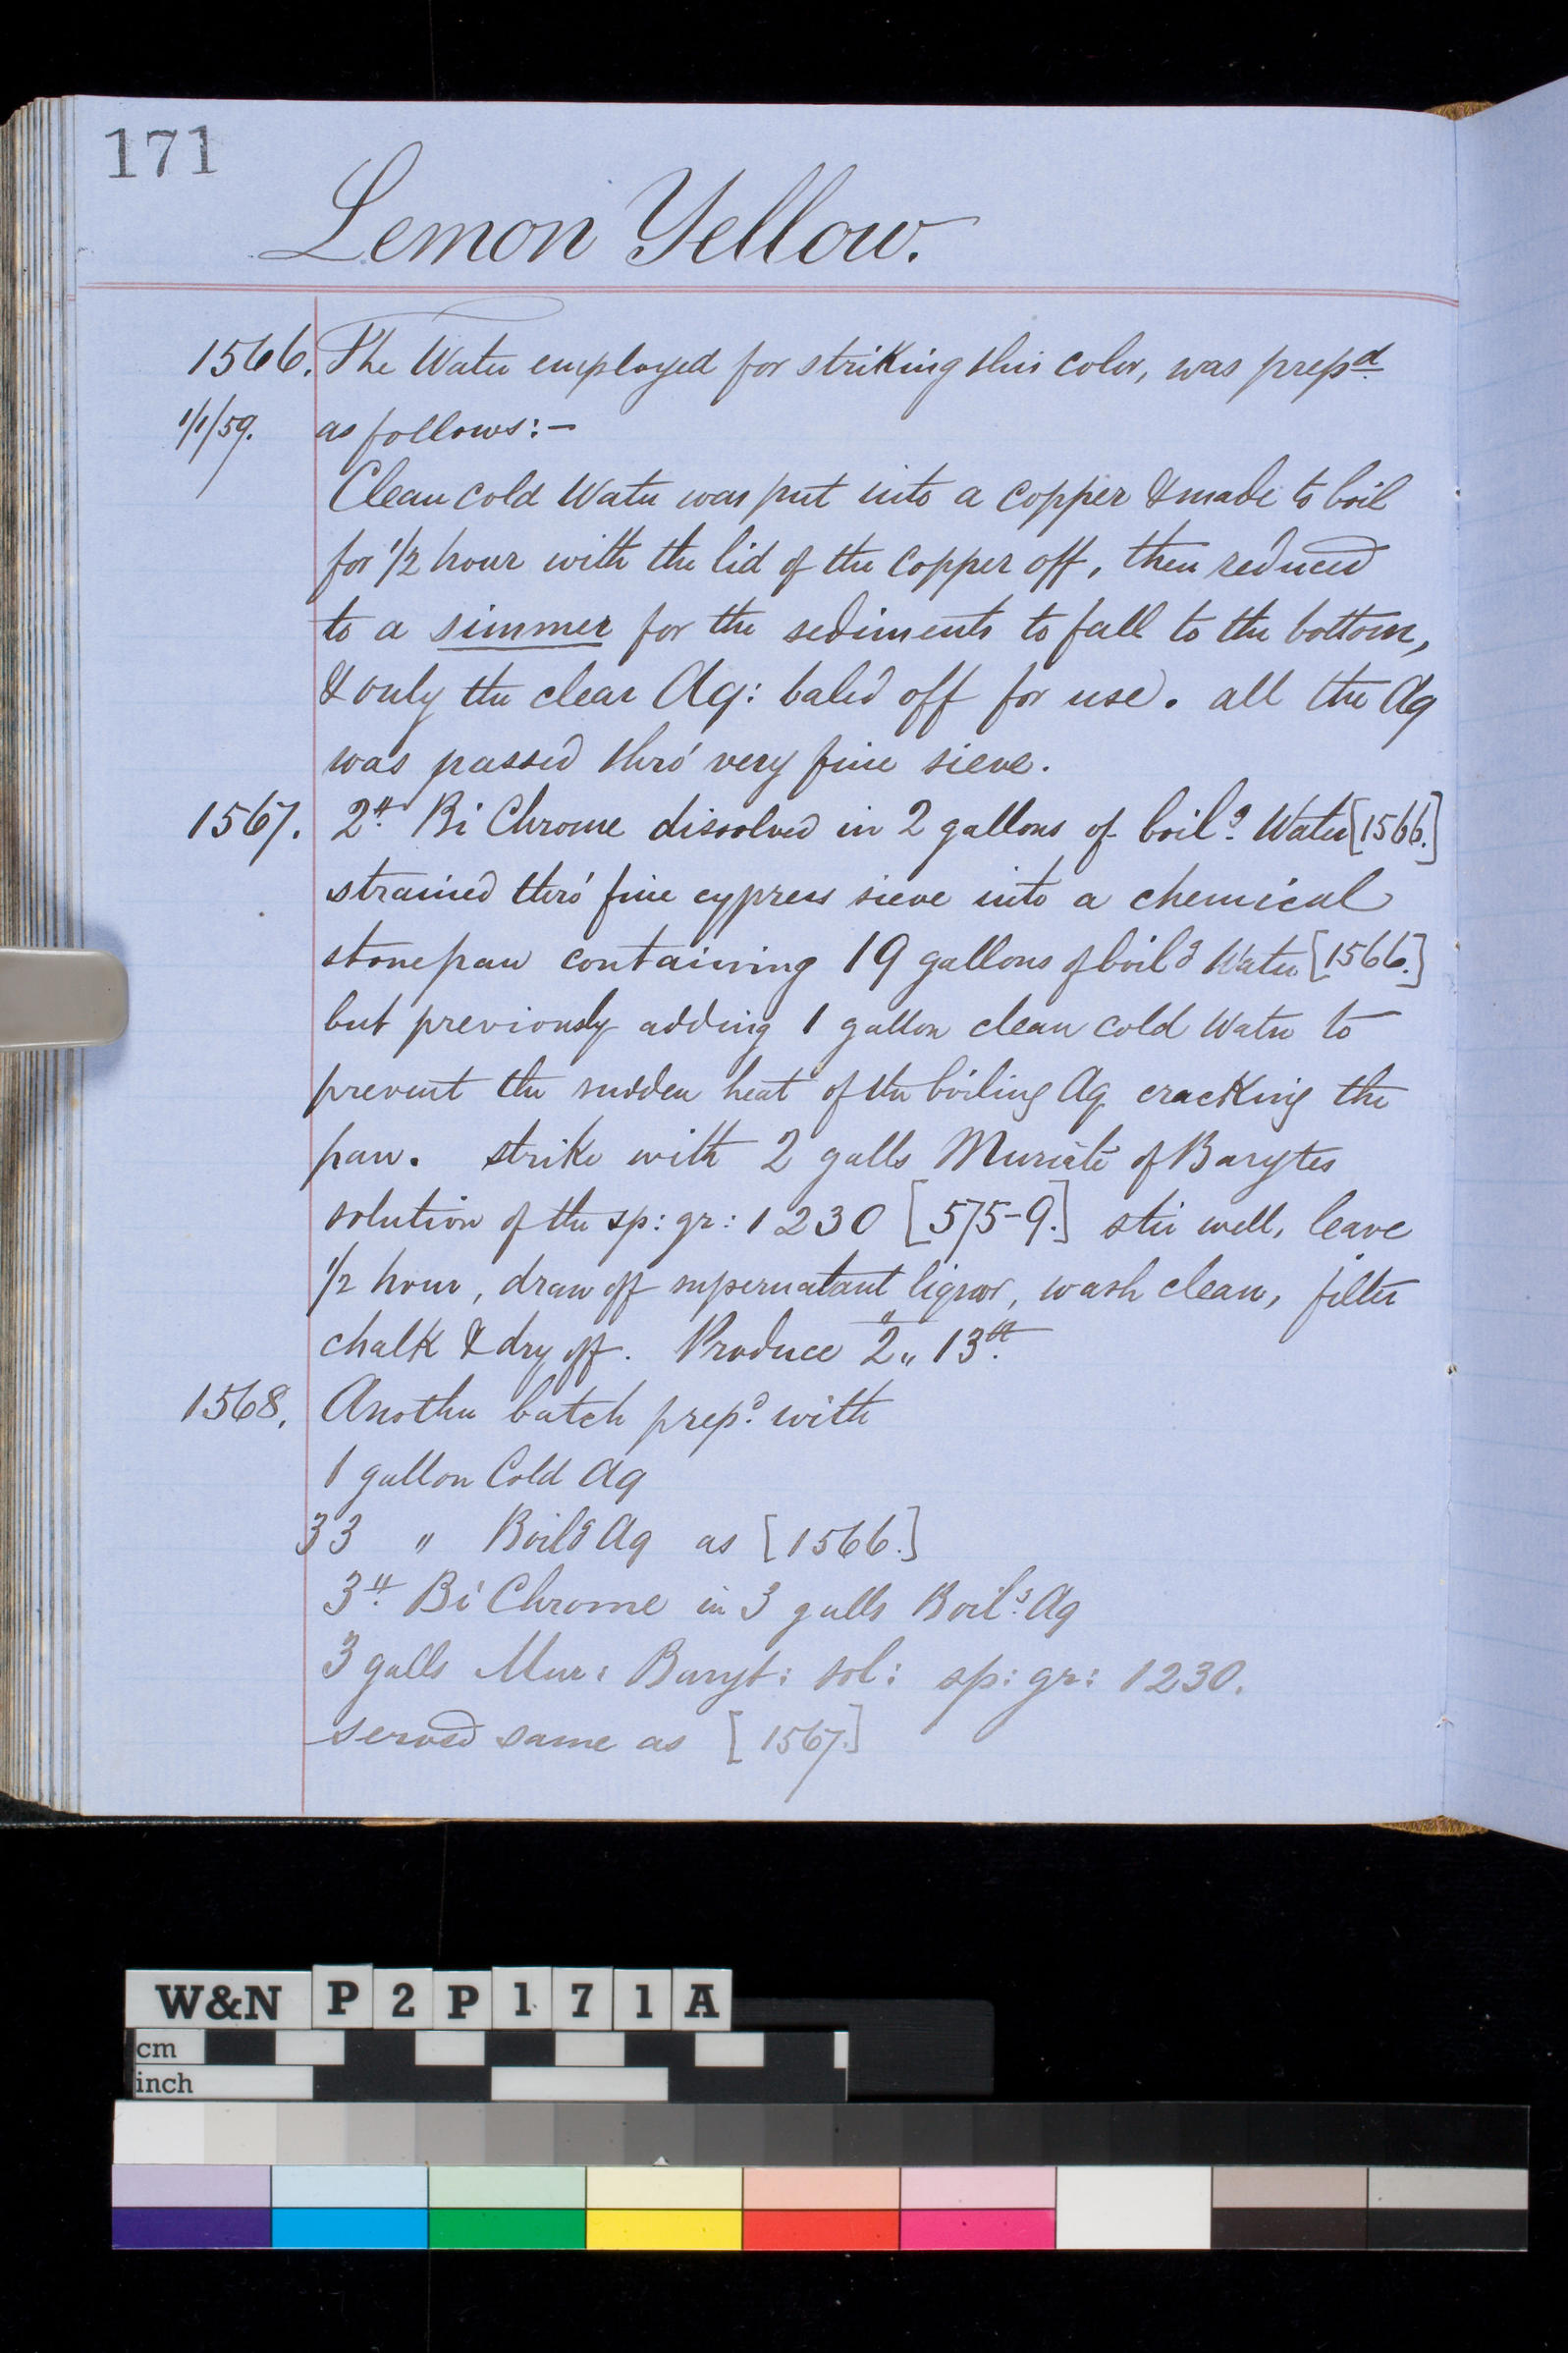 171
Lemon Yellow.
1566. The Water employed for striking this color, was prepd
1/1/59. as follows:-
Clean cold Water was put into a copper & made to boil
for 1/2 hour with the lid of the copper off, then reduced
to a simmer for the sediments to fall to the bottom,
& only the clear Aq: baled off for use. all the Aq
was passed thro' very fine sieve.
1567. 2lb Bi Chrome dissolved in 2 gallons of boilg Water [1566.]
strained thro' fine cypress sieve into a chemical
stonepan containing 19 gallons of boilg Water [1566.]
but previously adding 1 gallon clean cold Water to
prevent the sudden heat of the boiling Aq cracking the
pan. strike with 2 galls Muriate of Barytes
solution of the sp: gr: 1230 [575-9.] stir well, leave
1/2 hour, draw off supernatant liquor, wash clean, filter
chalk & dry off. Produce 2 " 13
1568. Another batch prepd with
1 gallon Cold Aq
33 " Boilg Aq as [1566.]
3lb Bi Chrome in 3 galls Boilg Aq
3 galls Mur: Baryt: sol: sp: gr: 1230.
served same as [1567.]
W&N P2P171A
cm
inch